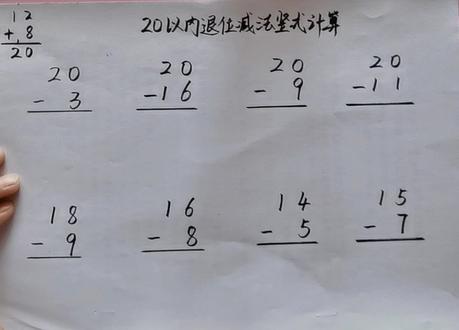 12
+.8
20
20以内退位减法竖式计算
20 20 20 20
- 3 -16 - 9 -11
18 16 14 15
- 9 - 8 - 5 - 7